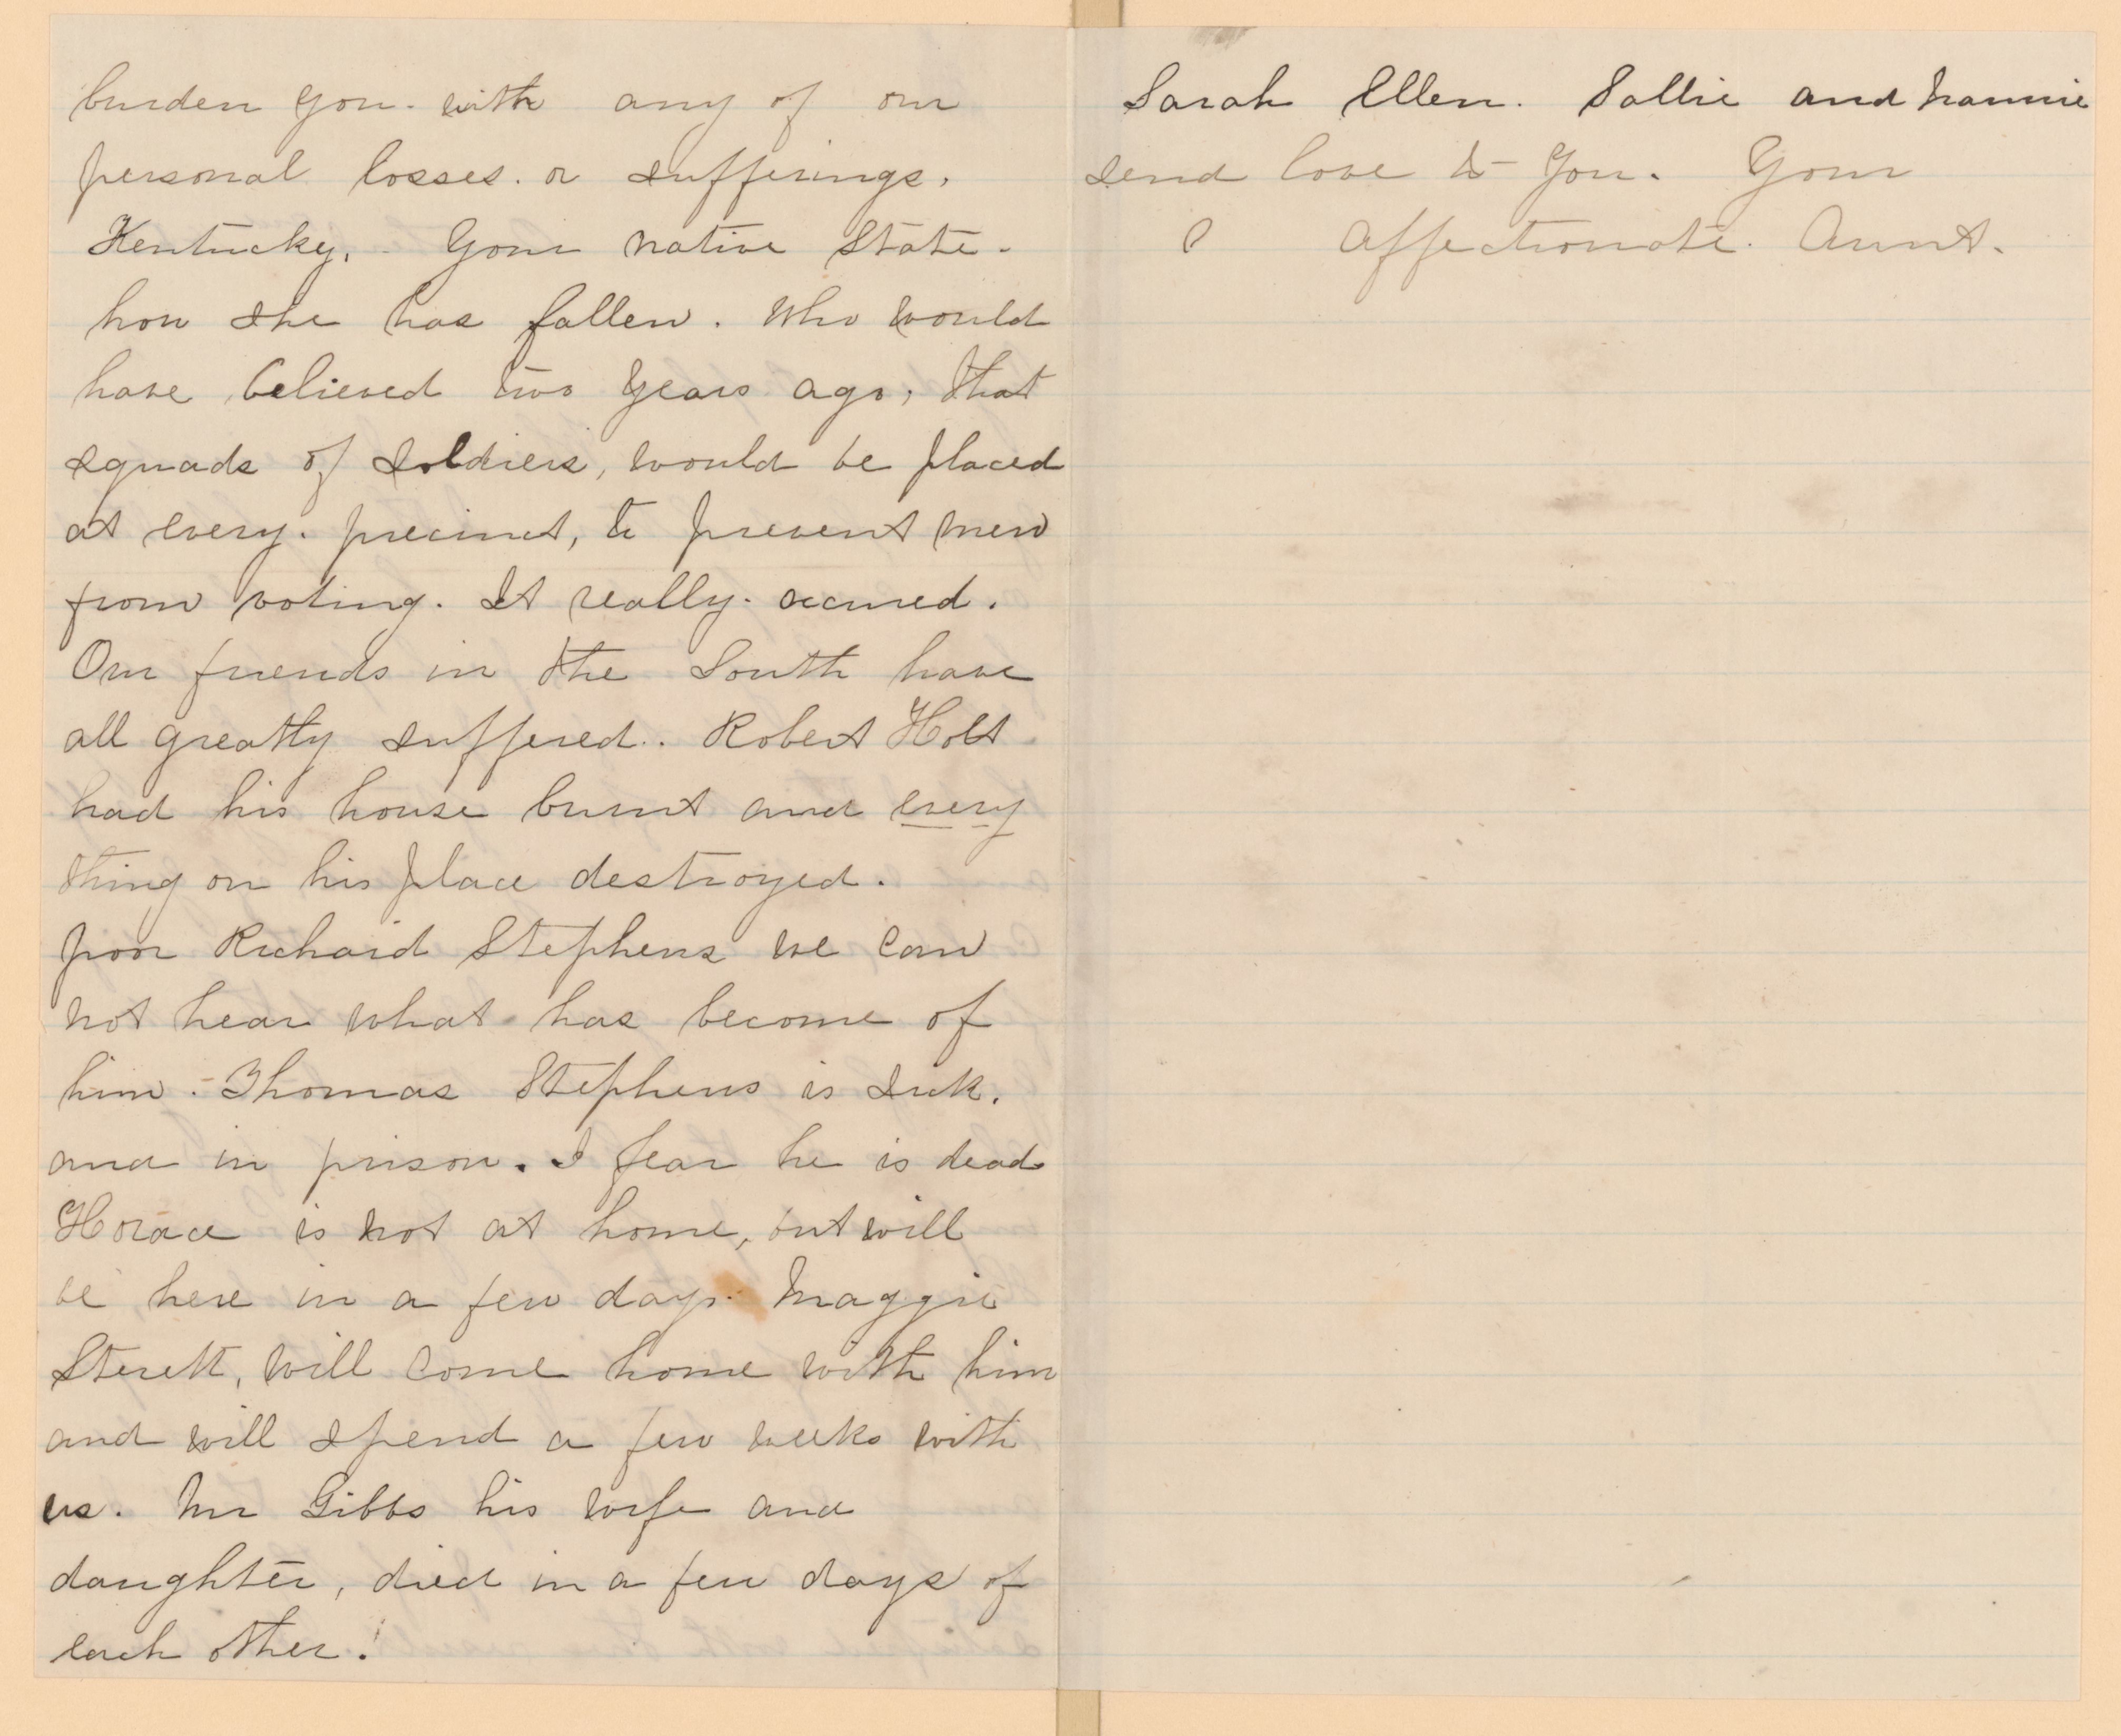 burden you. with any of our
personal losses. or sufferings.
Kentucky. Your native State.
how she has fallen. Who would
have believed two years ago, that
squads of soldiers, would be placed
at every. precinct, to prevent men
from voting. It really. occured.
Our friends in the South have
all greatly suffered.. Robert Holt
had his house burnt and every
thing on his place destroyed.
poor Richard Stephens we can
not hear what has become of
him. Thomas Stephens is sick.
and in prison. I fear he is dead
Horace is not at home, but will
be here in a few days. Maggie
Sterett, will come home with him
and will spend a few weeks with
us. Mr Gibbs his wife and
daughter, died in a few days of
each other!
Sarah Ellen. Sallie and Nannie
send love to you. Your
affectionate. Aunt.